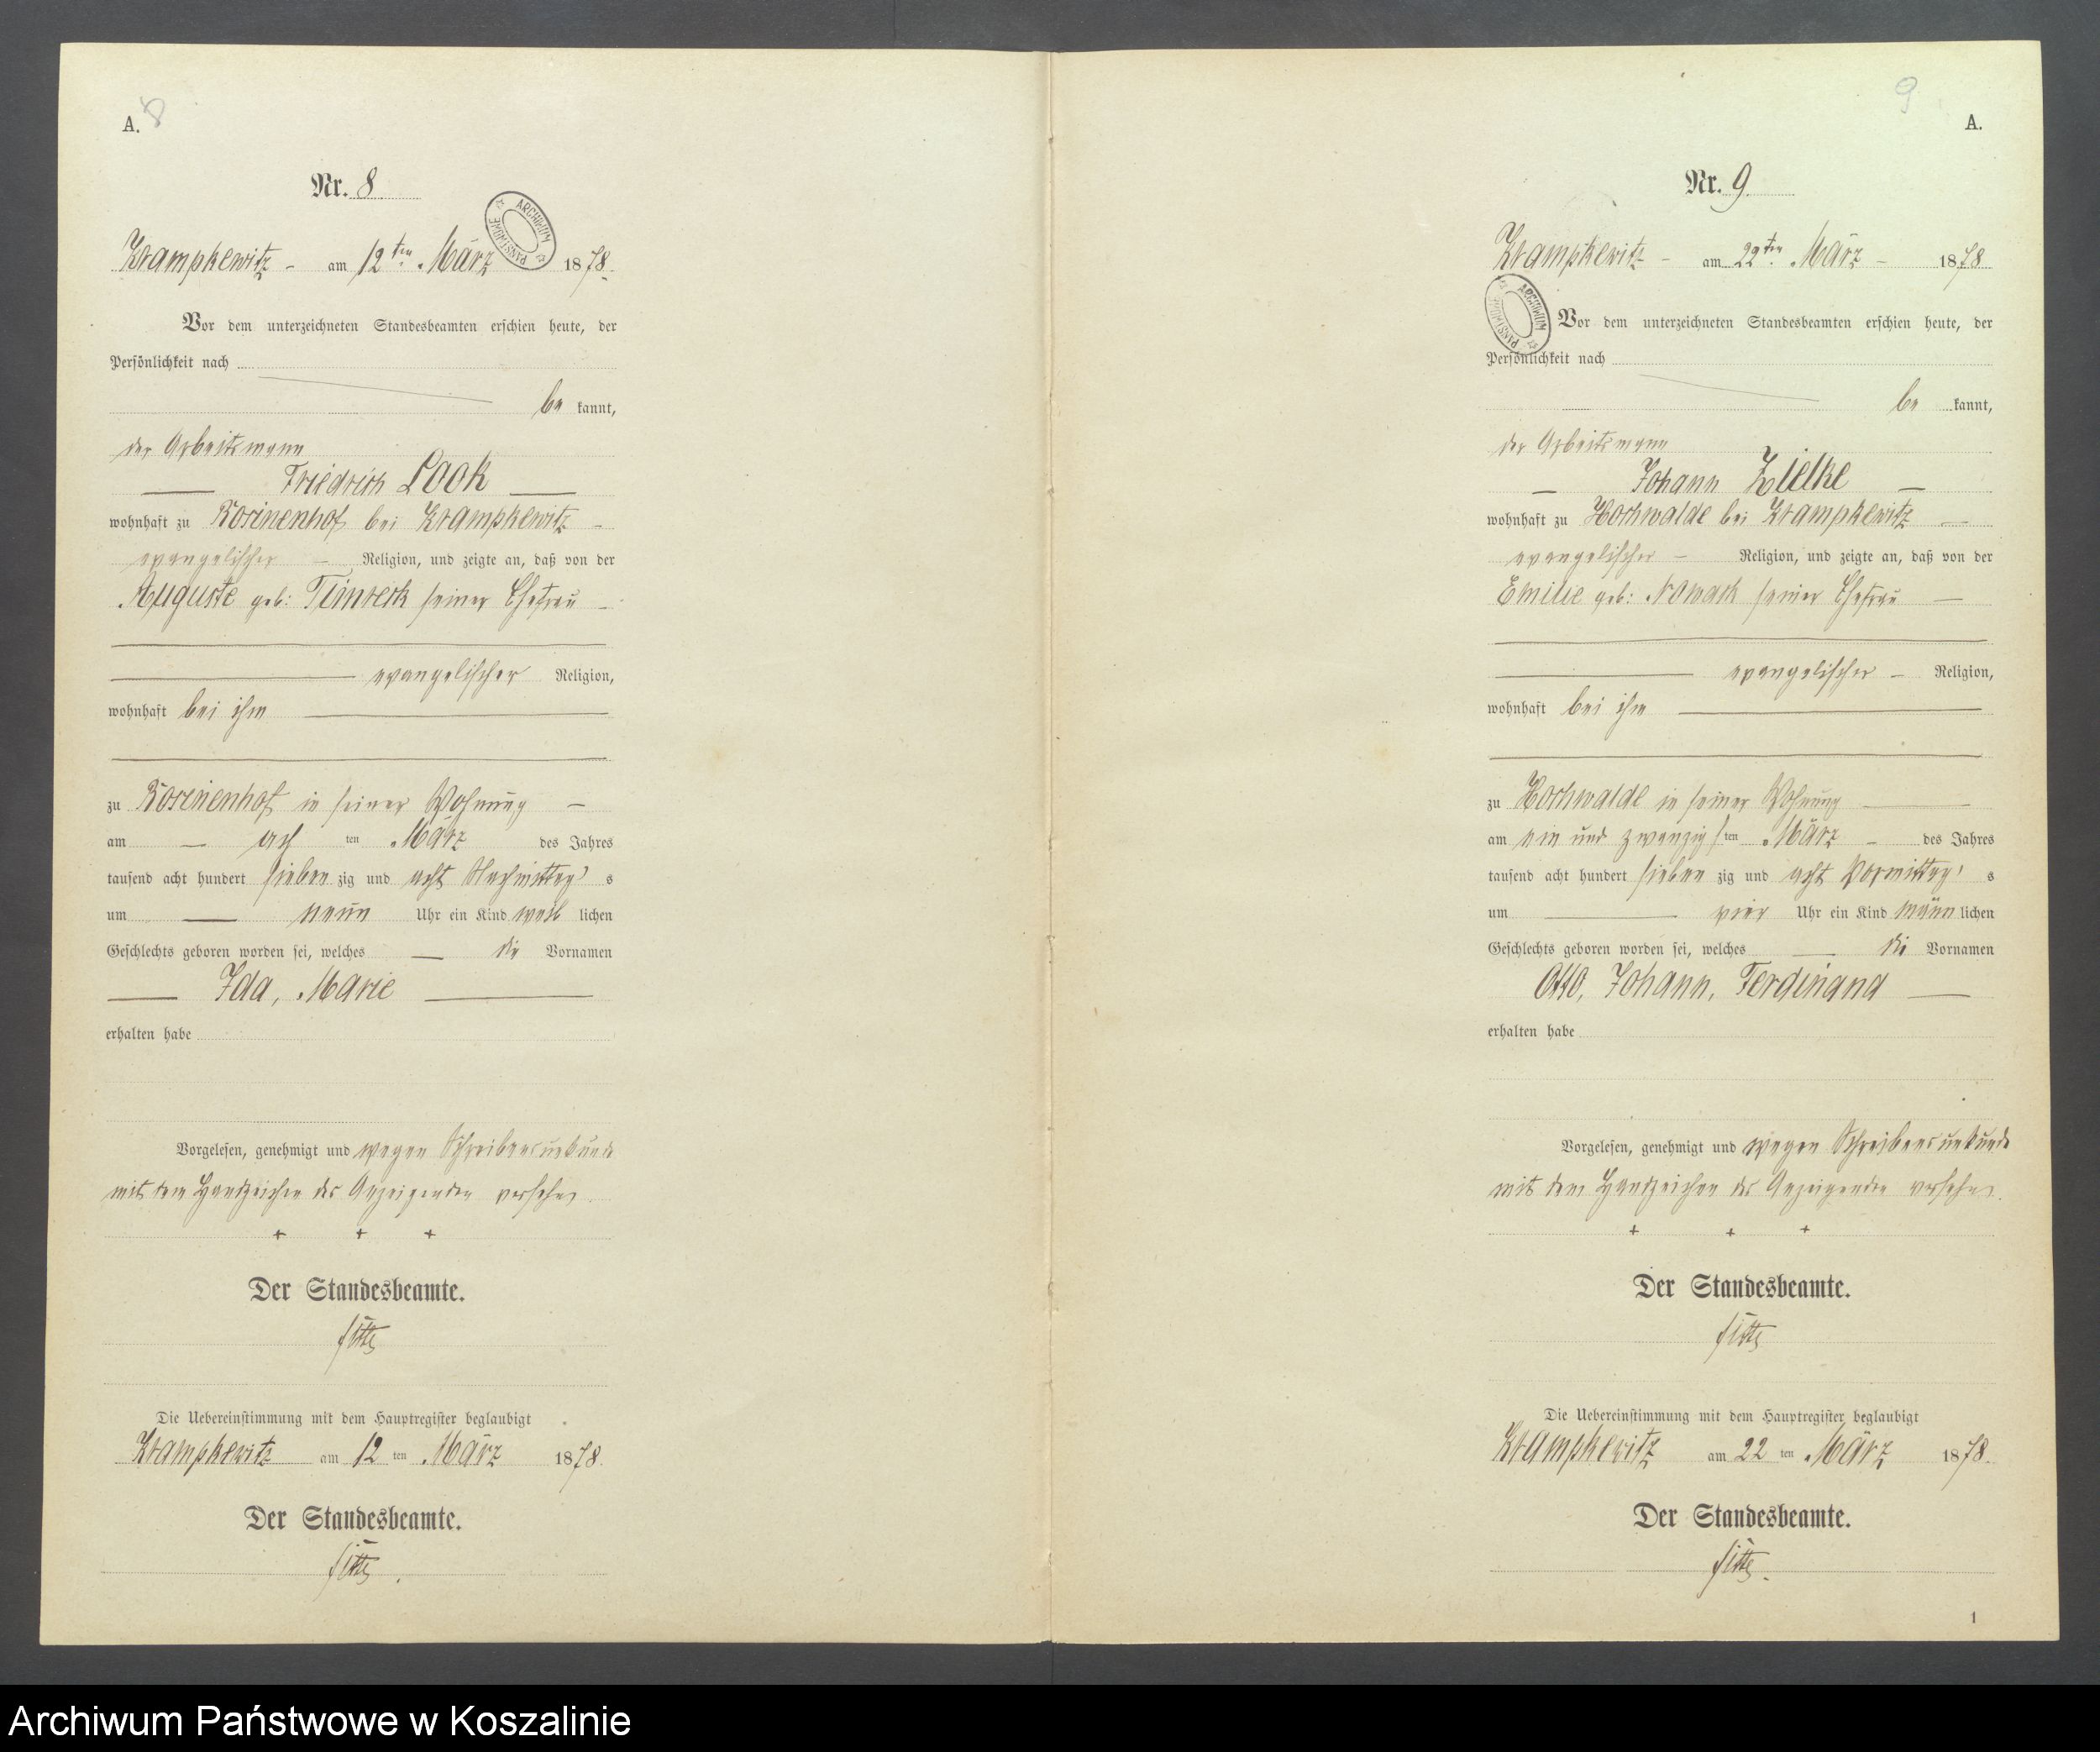 A. 8
Nr. 8
ARCHIWUM PAŃSTWOWE
Krampkewitz - am 12ten März 1878.
Vor dem unterzeichneten Standesbeamten erschien heute, der
Persönlichkeit nach
be kannt,
der Arbeitsmann
Friedrich Look
wohnhaft zu Rosinenhof bei Krampkewitz -
evangelischer - Religion, und zeigte an, daß von der
Auguste geb: seiner Ehefrau -
evangelischer Religion,
wohnhaft bei ihm
zu Rosinenhof in seiner Wohnung -
am - ach ten März des Jahres
tausend acht hundert sieben zig und acht Nachmittag s
um neun Uhr ein Kind weib lichen
Geschlechts geboren worden sei, welches die Vornamen
Ida, Marie
erhalten habe
Vorgelesen, genehmigt und wegen Schreibensunkunde
mit dem Handzeichen des Anzeigenden versehen.
+ + +
Der Standesbeamte.
Die Uebereinstimmung mit dem Hauptregister beglaubigt
Krampkewitz am 12 ten März 1878.
Der Standesbeamte.
9
A.
Nr. 9.
Krampkewitz - am 22ten März - 1878
ARCHIWUM PAŃSTWOWE
Vor dem unterzeichneten Standesbeamten erschien heute, der
Persönlichkeit nach
be kannt,
der Arbeitsmann
- Johann Zielke -
wohnhaft zu Hochwalde bei Krampkewitz -
evangelischer - Religion, und zeigte an, daß von der
Emilie geb: Nowack seiner Ehefrau -
evangelischer - Religion,
wohnhaft bei ihm
zu Hochwalde in seiner Wohnung
am ein und zwanzigs ten März - des Jahres
tausend acht hundert sieben zig und acht Vormittag s
um vier Uhr ein Kind männ lichen
Geschlechts geboren worden sei, welches die Vornamen
Otto, Johann, Ferdinand
erhalten habe
Vorgelesen, genehmigt und wegen Schreibensunkunde
mit dem Handzeichen des Anzeigenden versehen.
+ + +
Der Standesbeamte.
Die Uebereinstimmung mit dem Hauptregister beglaubigt
Krampkewitz am 22 ten März 1878.
Der Standesbeamte.
1
Archiwum Państwowe w Koszalinie